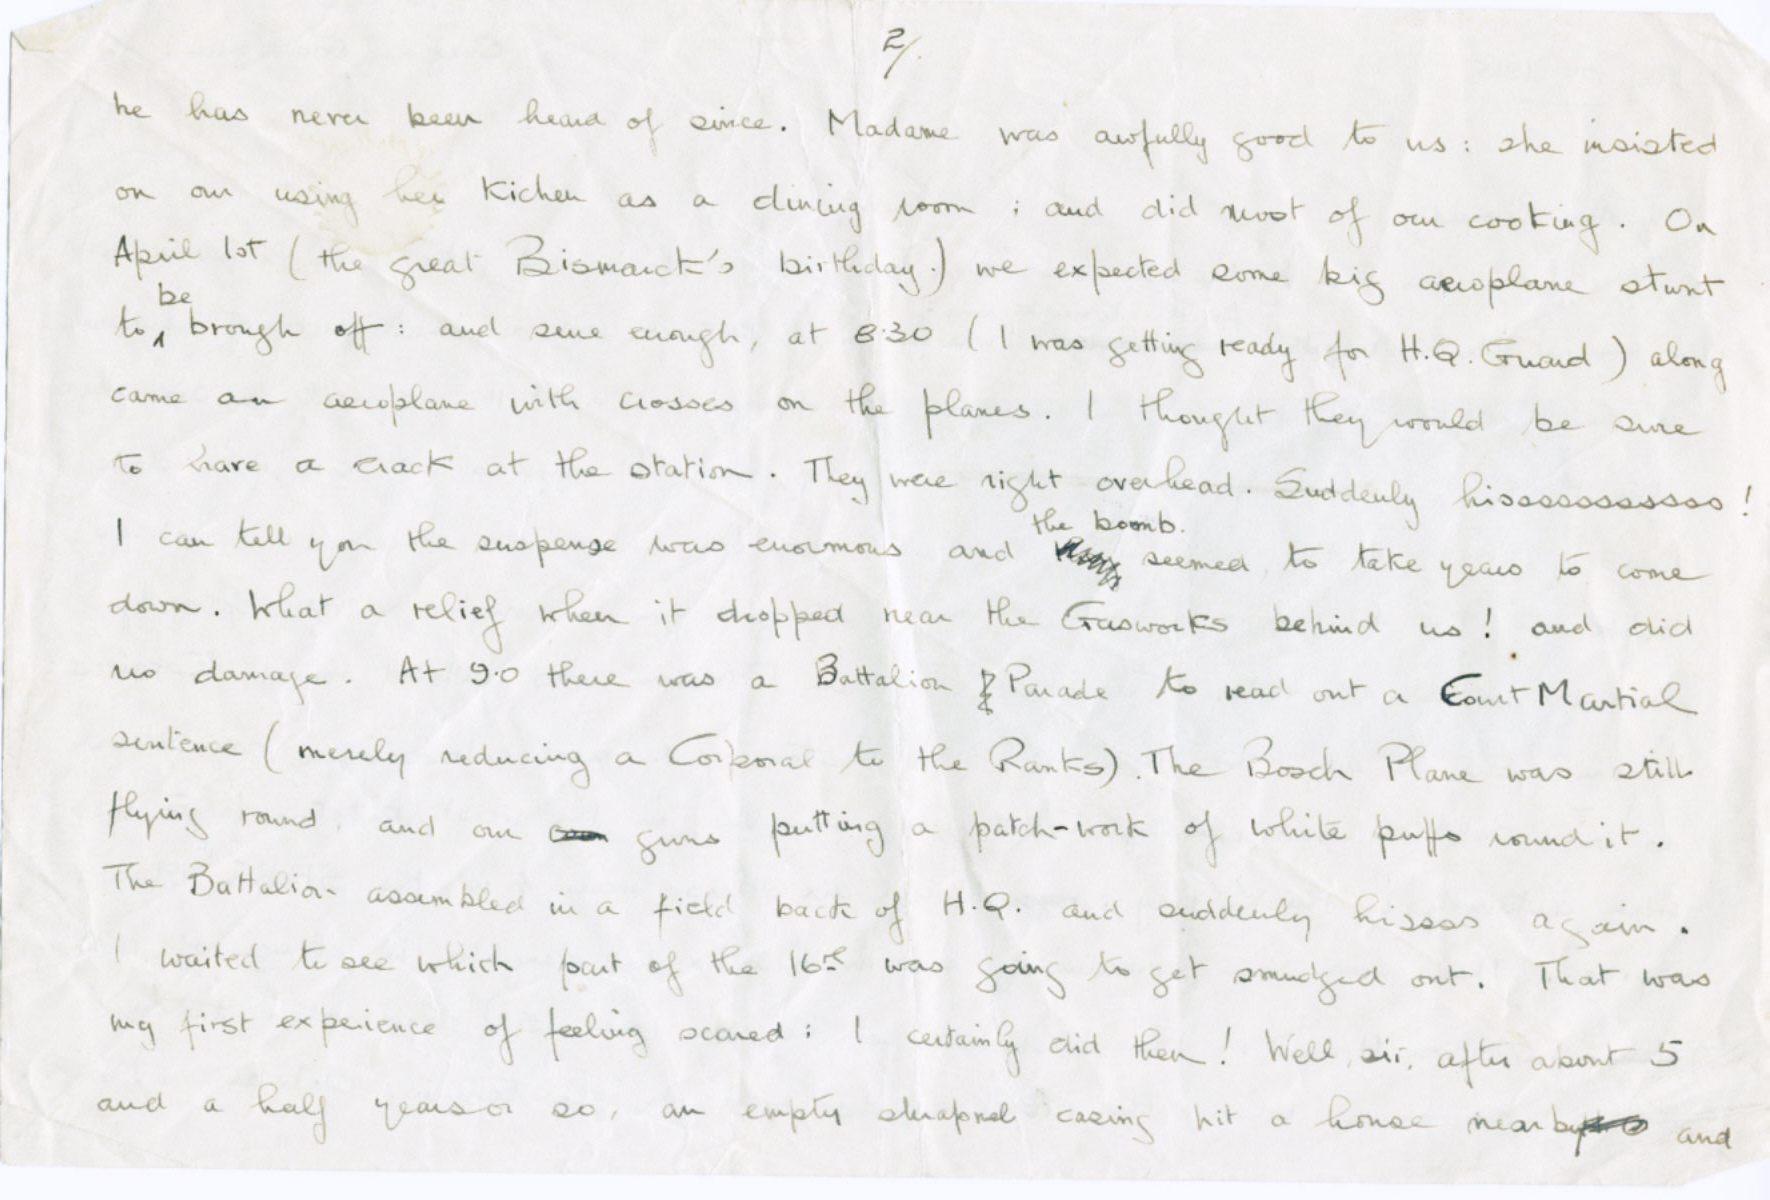 2/.
he has never been heard of since. Madame was awfully good to us: she insisted
on our using her kichen as a dining room; and did most of our cooking. On
April 1st (the great Bismarck's birthday.) we expected some big aeroplane stunt
to be brough off: and sure enough, at 8.30 (I was getting ready for H.Q. Guard) along
came an aeroplane with crosses on the planes. I thought they would be sure
to have a crack at the station. They were right overhead. Suddenly hissssssssssss!
I can tell you the suspense was enormous and the boomb. seemed to take years to come
down. What a relief when it dropped near the Gasworks behind us! and did
no damage. At 9.0 there was a Battalion Parade to read out a Court Martial
sentence (merely reducing a Corporal to the Ranks). The Bosch Plane was still
flying round, and our guns putting a patch-work of white puffs round it.
The Battalion assembled in a field back of H.Q. and suddenly hissss again.
I waited to see which part of the 16th was going to get smudged out. That was
my first experience of feeling scared: I certainly did then! Well, sir, after about 5
and a half years or so, an empty shrapnel casing hit a house nearby and